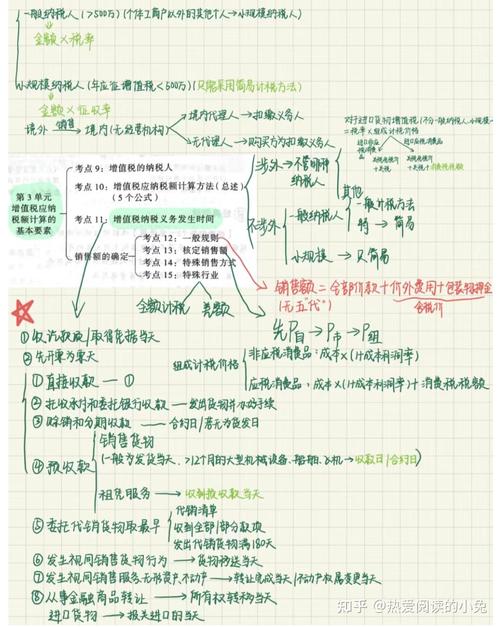 一般纳税人(>500万)(个体工商户以外的其他个人→小规模纳税人)
金额×税率
小规模纳税人(年应征增值税<500万)(只能采用简易计税方法)
金额×征收率
境外 销售→ 境内(无经营机构)
境内代理人→扣缴义务人
无代理人→购买方为扣缴义务人
对于进口货物增值税(不分一般纳税人、小规模)
=税率×组成计税价格
第3单元
增值税应纳
税额计算的
基本要素
考点9:增值税的纳税人
考点10:增值税应纳税额计算方法(总述)
(5个公式)
考点11:增值税纳税义务发生时间
销售额的确定
考点12:一般规则
考点13:核定销售额
考点14:特殊销售方式
考点15:特殊行业
涉外→不管哪种
纳税人
不涉外
一般纳税人
其他
一般计税方法
特→简易
小规模→只简易
全额计税 差额
销售额=全部价款+价外费用+包装物押金
(无五"代")
含税价
先P自→P市→P组
组成计税价格
非应税消费品:成本×(1+成本利润率)
应税消费品:成本×(1+成本利润率)+消费税税额
①收讫款项/取得凭据当天
②先开票为票天
①直接收款—①
②托收承付和委托银行收款—发出货物并办好手续
③赊销和分期收款—合约日/若无为发货日
④预收款
销售货物
(一般为发货当天,>12个月的大型机械设备、船舶、飞机→收款日/合约日)
租赁服务→收到预收款当天
⑤委托代销货物取最早
代销清单
收到全部/部分款项
发出代销货物满180天
⑥发生视同销售货物行为→货物移送当天
⑦发生视同销售服务、无形资产、不动产→转让完成当天/不动产权属变更当天
⑧从事金融商品转让→所有权转移当天
进口货物→报关进口的当天
知乎 @热爱阅读的小兔